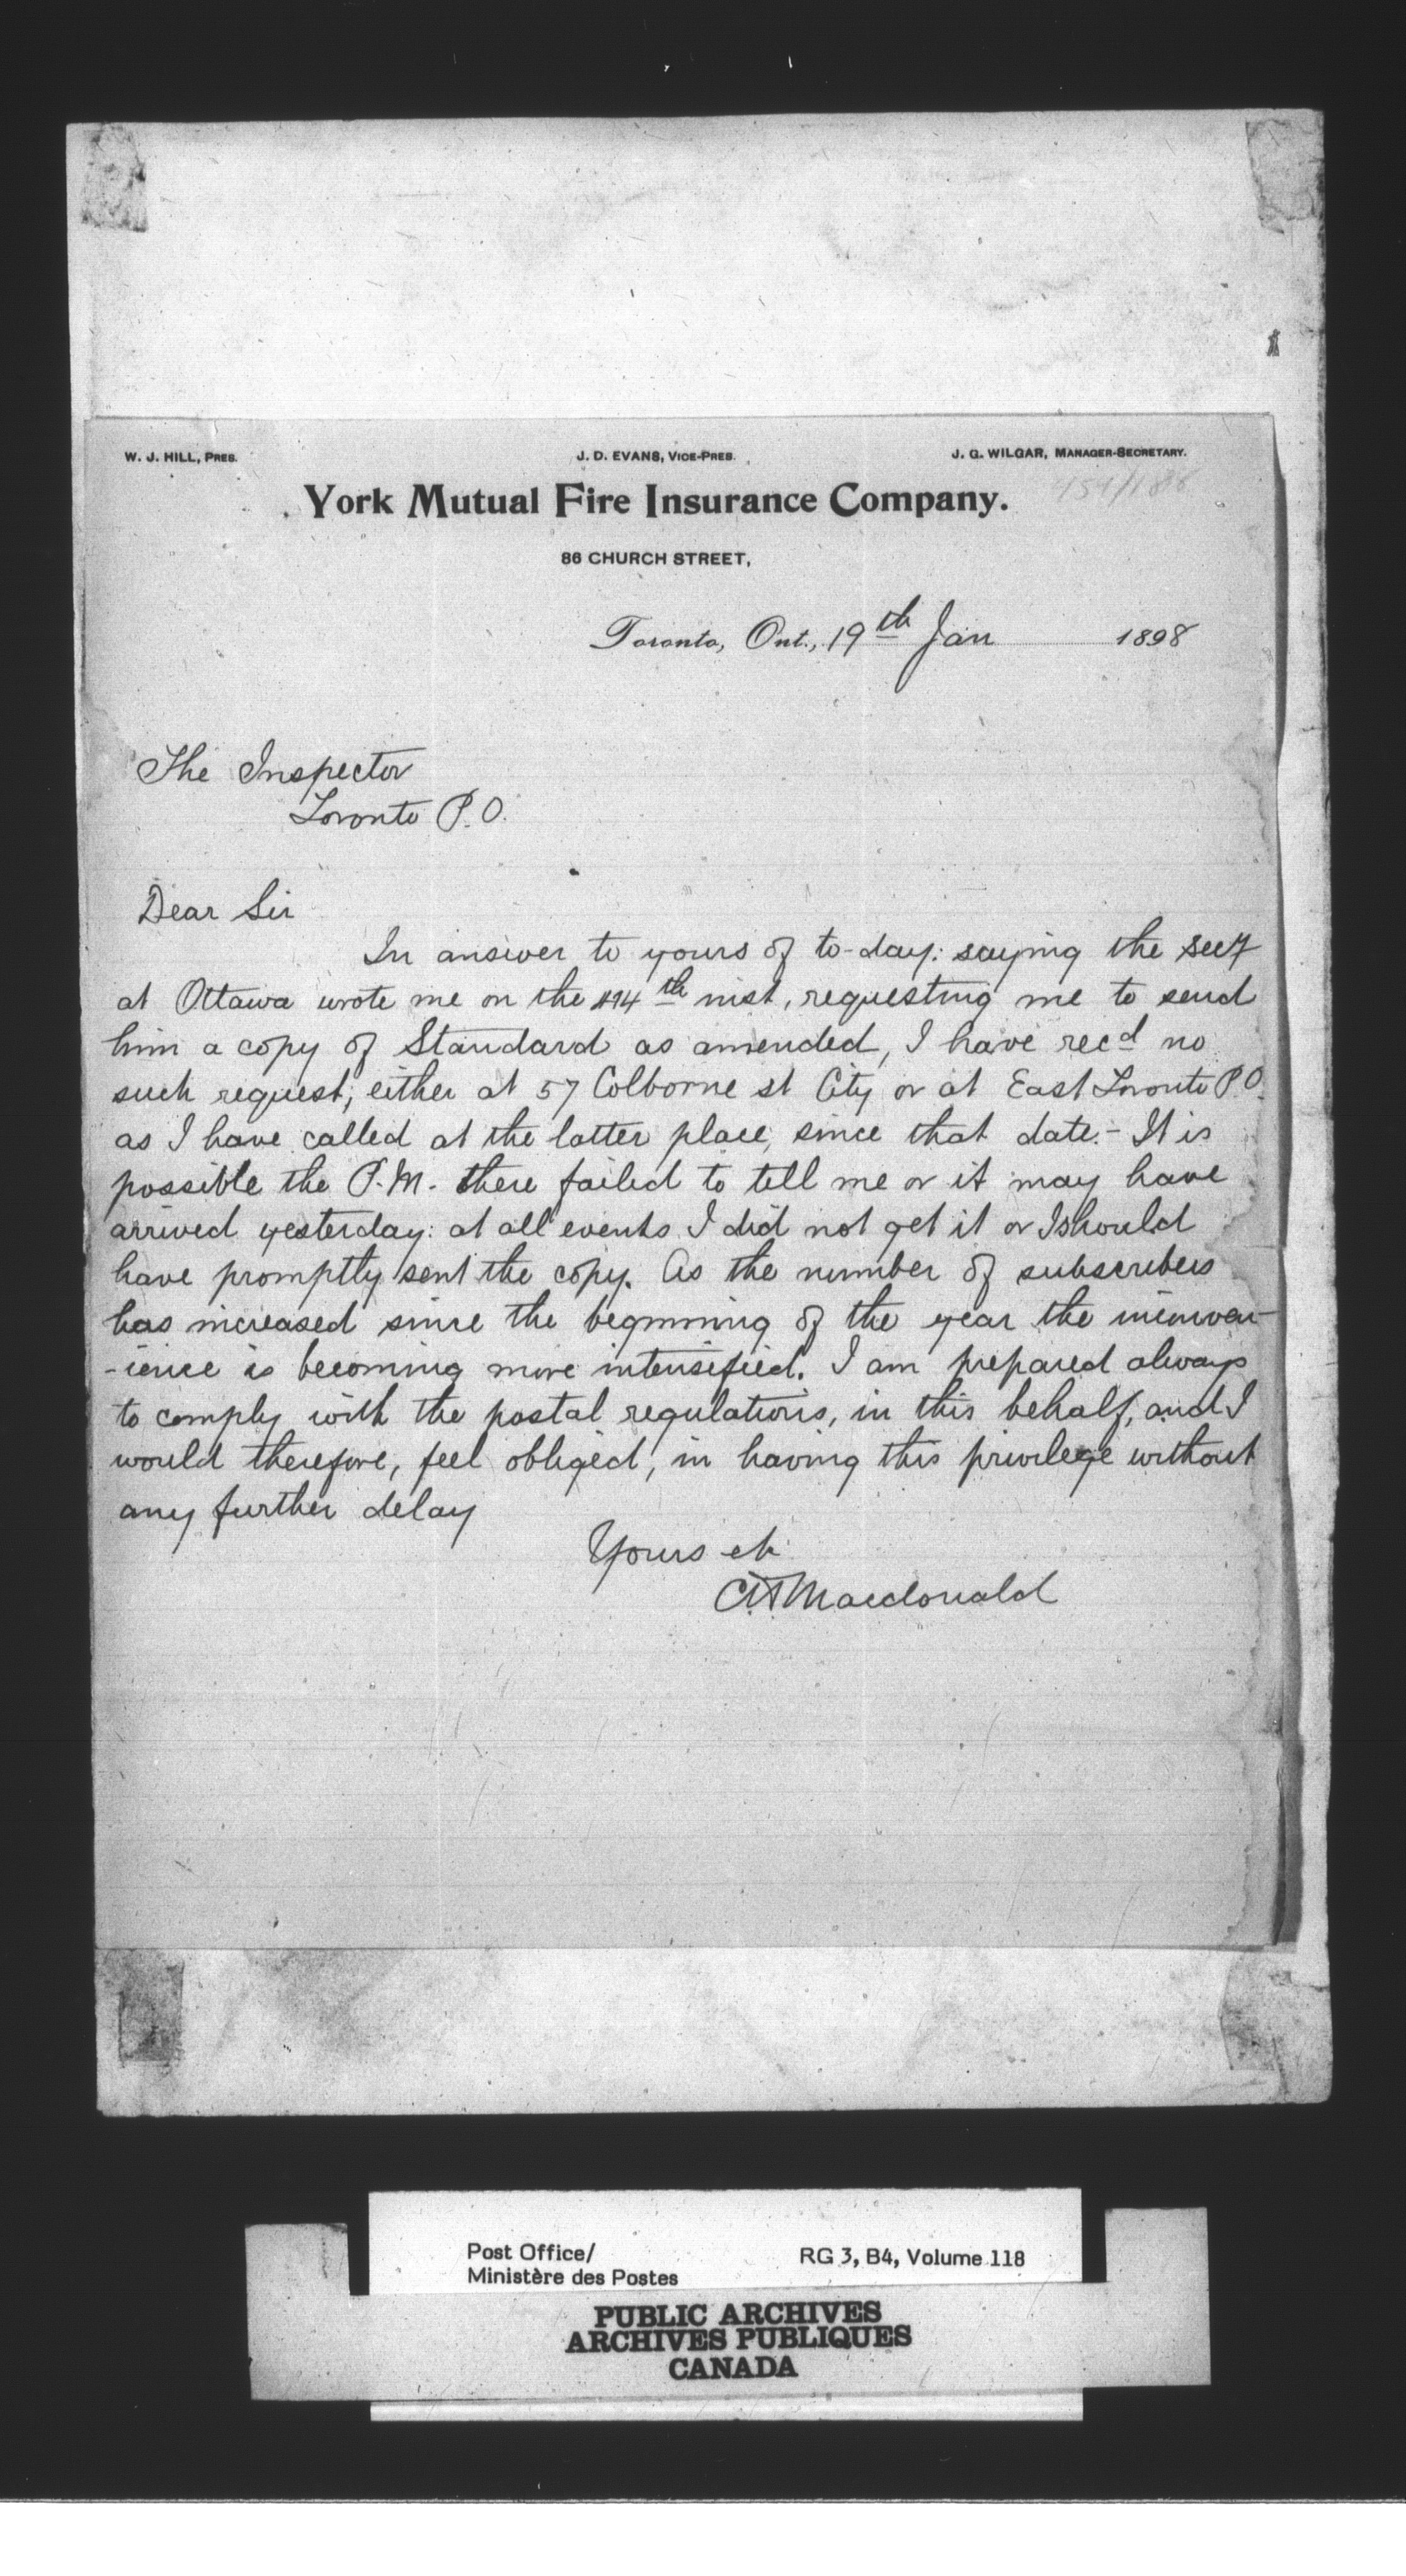 W. J. HILL, PRES.
J. D. EVANS, VICE-PRES.
J. G. WILGAR, MANAGER-SECRETARY.
York Mutual Fire Insurance Company.
86 CHURCH STREET,
Toronto, Ont., 19th Jan 1898
The Inspector
Toronto P.O.
Dear Sir
In answer to yours of to-day: saying the Secy
at Ottawa wrote me on the 14th inst, requesting me to send
him a copy of Standard as amended, I have recd no
such request; either at 57 Colborne st City or at East Toronto P.O.
as I have called at the latter place, since that date.- It is
possible the P.M. there failed to tell me or it may have
arrived yesterday: at all events I did not get it or I should
have promptly sent the copy. As the number of subscribers
has increased since the beginning of the year the inconven-
-ience is becoming more intensified. I am prepared always
to comply with the postal regulations, in this behalf, and I
would therefore, feel obliged, in having this privilege without
any further delay
Yours etc
A.T. Macdonald
Post Office/
Ministère des Postes
RG 3, B4, Volume 118
PUBLIC ARCHIVES
ARCHIVES PUBLIQUES
CANADA